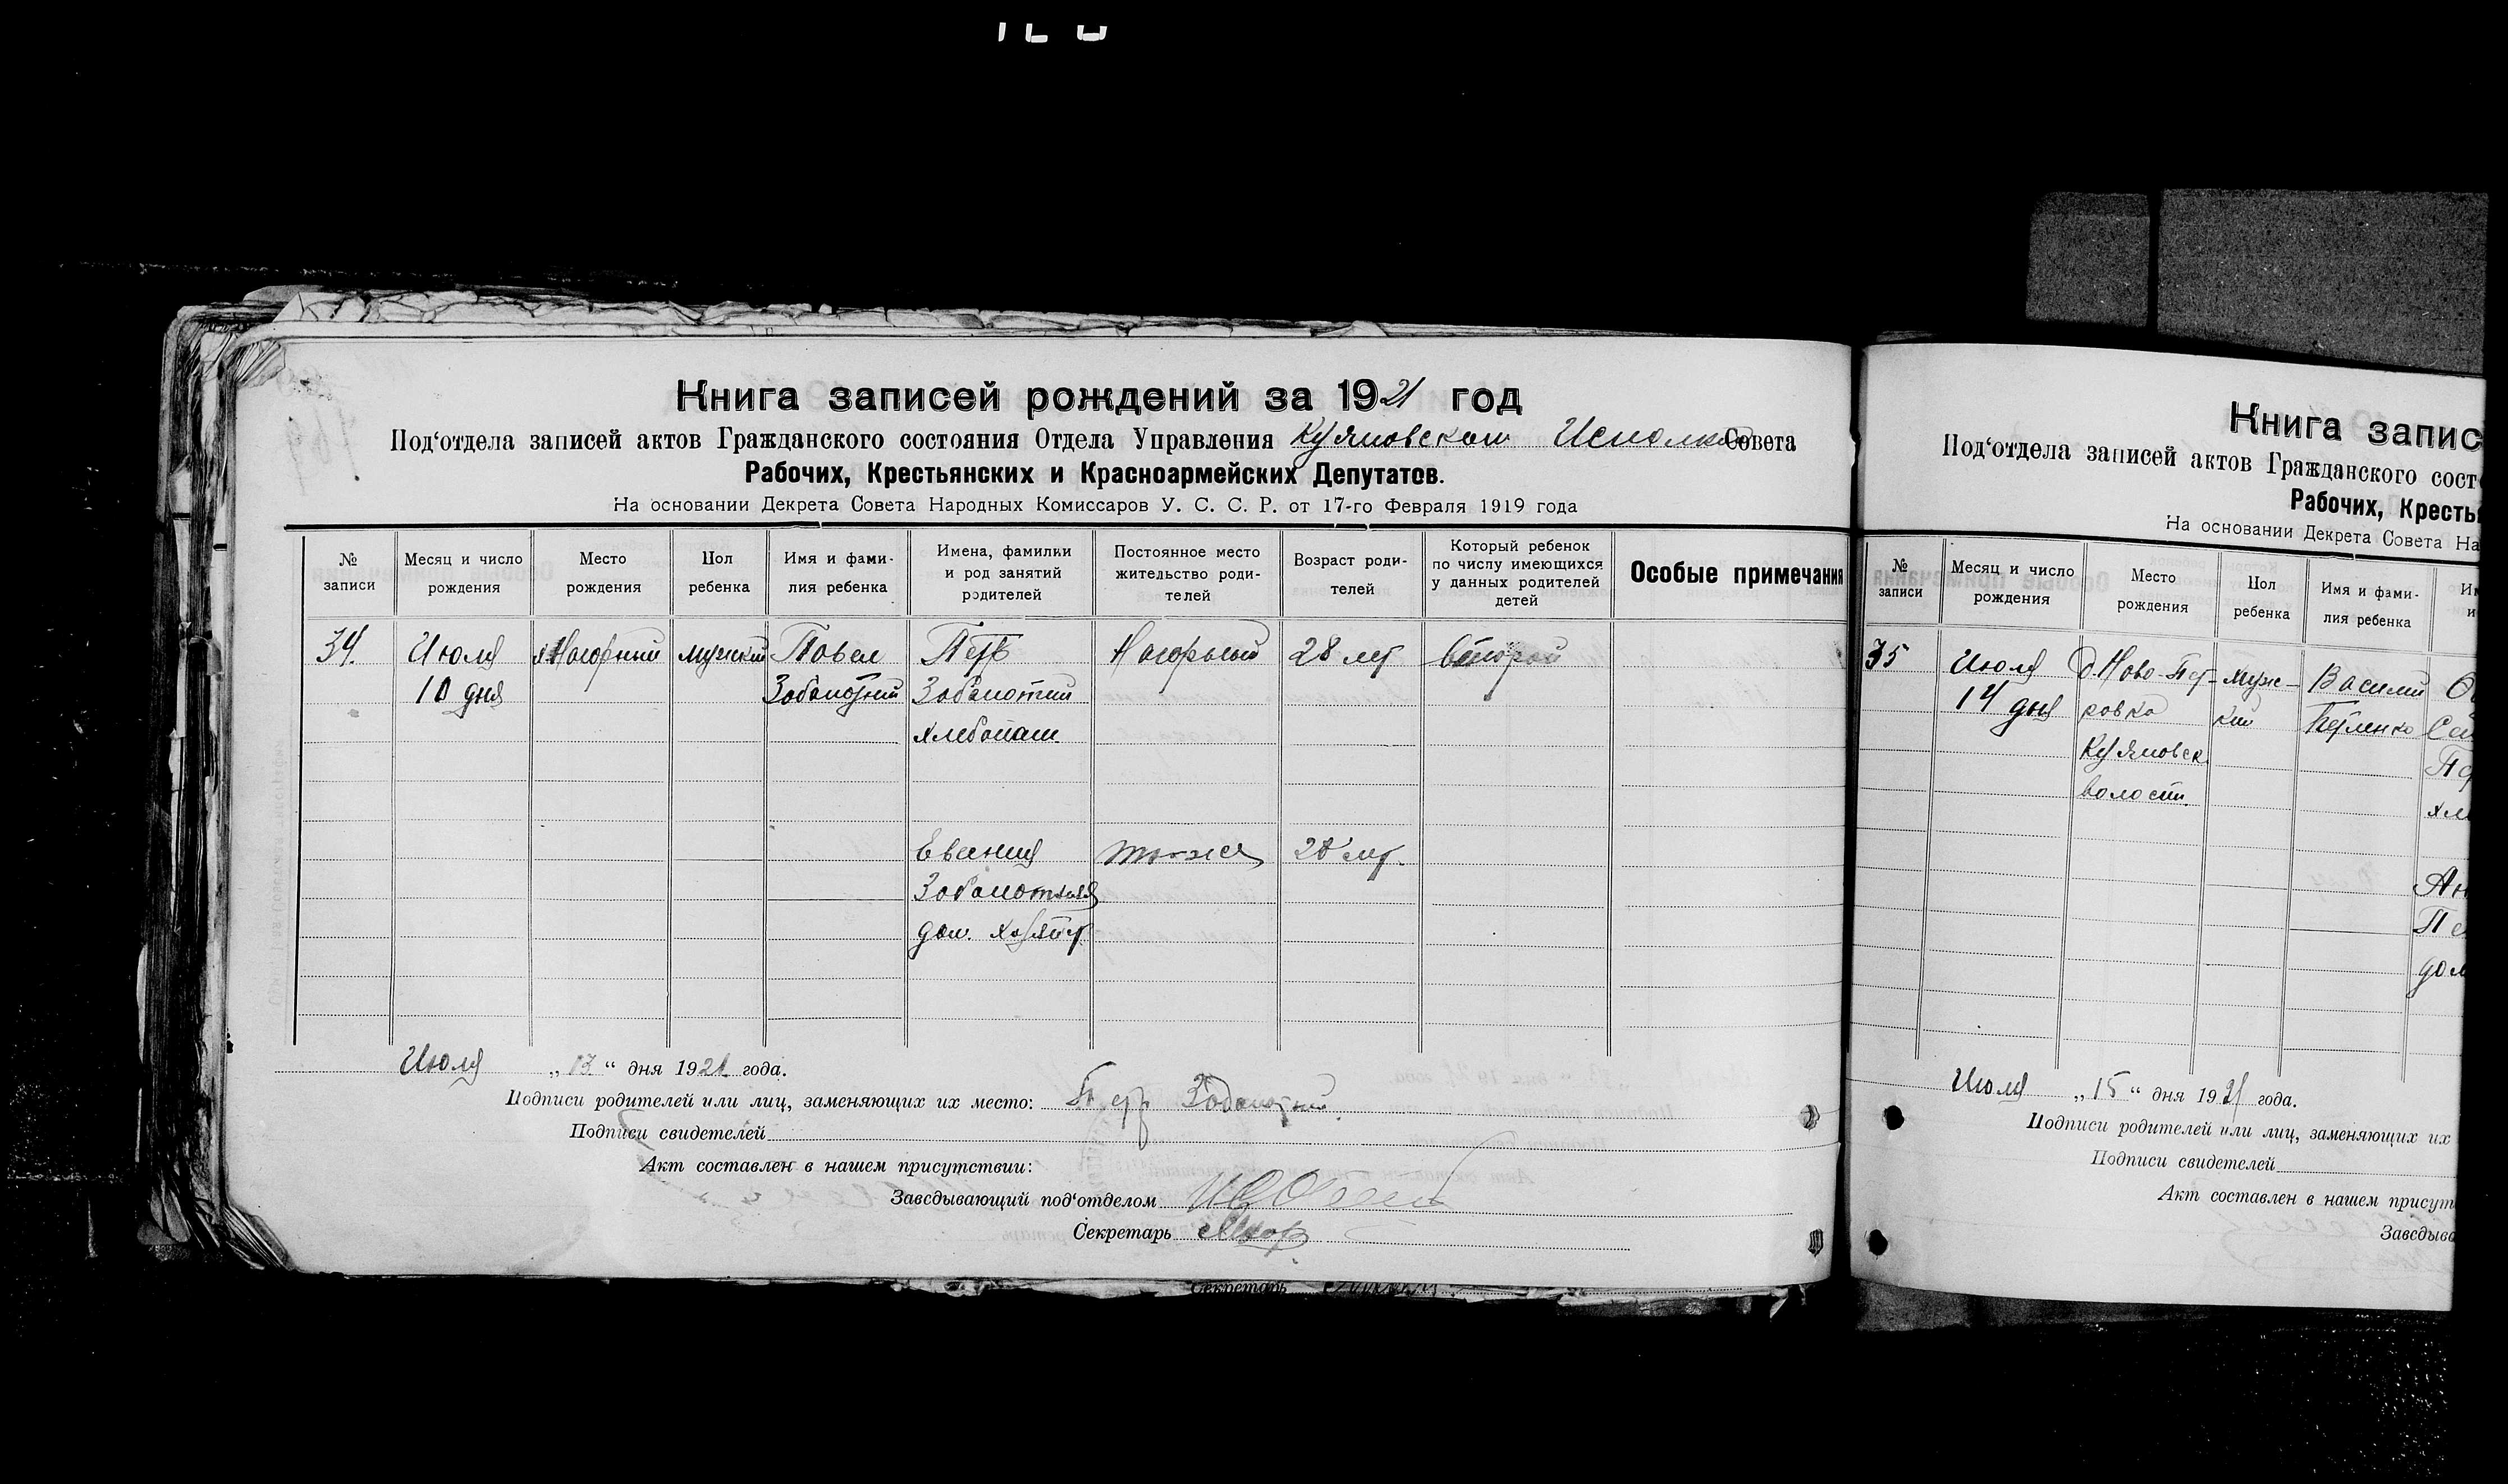 Книга записей рождений за 1921 год
Под‘отдела записей актов Гражданского состояния Отдела Управления Совета
Рабочих, Крестьянских и Красноармейских Депутатов.
На основании Декрета Совета Народных Комиссаров У. С. С. Р. от 17-го Февраля 1919 года
№ записи
Месяц и число рождения
Место рождения
Пол ребенка
Имя и фами-
лия ребенка
Имена, фамилки
и род занятий
родителей
Постоянное место
жительство роди-
телей
Возраст роди-
телей
Который ребенок
по числу имеющихся
у данных родителей
детей
Особые примечания
34.
Июля
10 дня
Нагорный
мужский
Павел
Заболотний
Петр
Заболотний
хлебопаш.
Нагорный
28 лет
второй
Евгения
Заболотняя
дом. хозяйст.
тоже
28 лет.
Июля „13“ дня 1921 года.
Подписи родителей или лиц, заменяющих их место: Петр Заболотний.
Подписи свидетелей
Акт составлен в нашем присутствии:
Заведывающий под‘отделом
Секретарь
Секретарь
Книга запис
Под‘отдела записей актов Гражданского сост
Рабочих, Кресть
На основании Декрета Совета На
№ записи
Месяц и число рождения
Место рождения
Пол ребенка
Имя и фами-
лия ребенка
35
Июля
14 дня
д. Ново-Пет-
ровка
волости.
муж-
кий
Василий
Июля „15“ дня 1921 года.
Подписи родителей или лиц, заменяющих их
Подписи свидетелей
Акт составлен в нашем присут
Заведыва